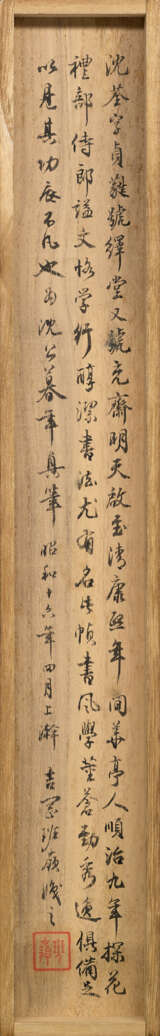 沈荃字貞蕤號繹堂又號充齋明天啟至清康熙年間華亭人順治九年探花
禮部侍郎謚文恪学行醇潔書法尤有名此幀書風學董蒼勁秀逸俱備足
以見其功底不凡也為沈公暮年真筆 昭和十六年四月上澣 吉冨班嶺識之